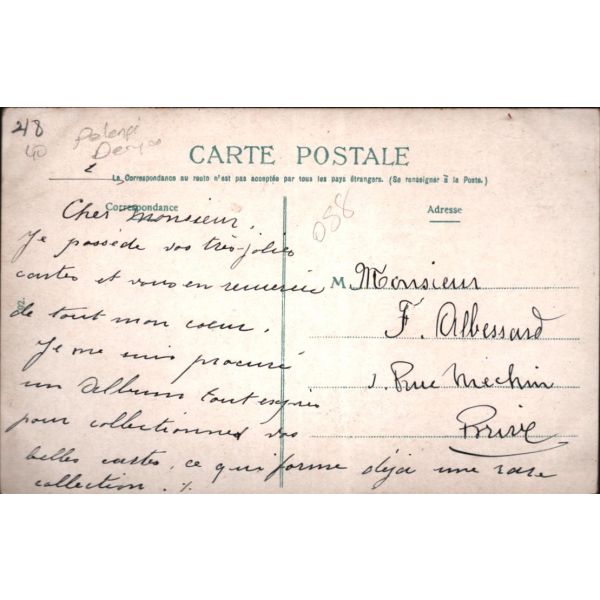 218
40
CARTE POSTALE
La Correspondance au recto n'est pas acceptée par tous les pays étrangers. (Se renseigner à la Poste.)
Correspondance
Adresse
058
Cher Monsieur,
Je possède vos très jolies
cartes et vous en remercie
de tout mon coeur.
Je me suis procuré
un album tout exprès
pour collectionner vos
belles cartes, ce qui forme déjà une rare
collection. ./.
M. Monsieur
F. Albessard
1. Rue Méchin
Brive